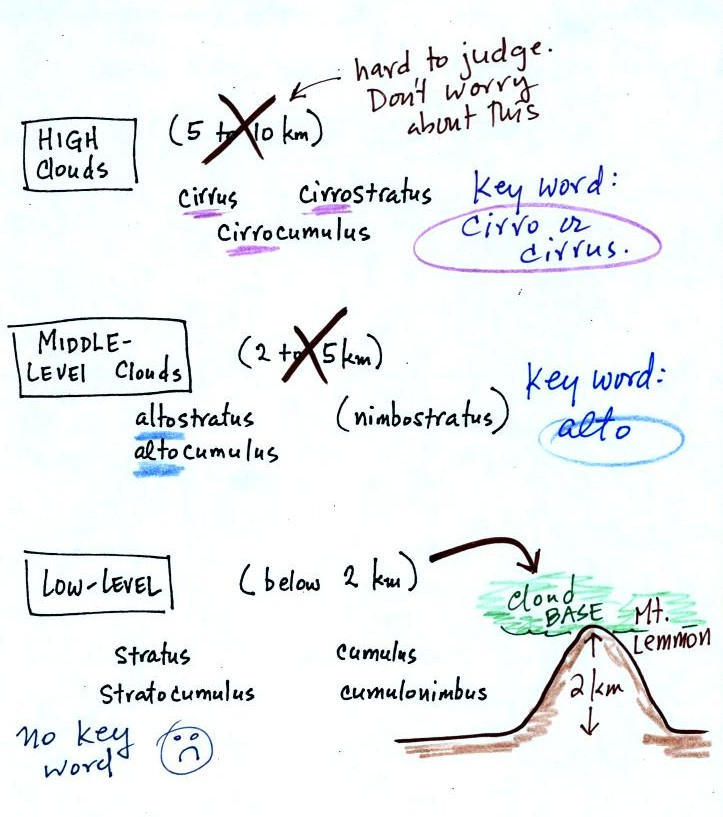 hard to judge.
Don't worry
about This
HIGH
Clouds
(5 to 10 km)
cirrus cirrostratus
cirrocumulus
Key word:
cirro or
cirrus.
MIDDLE-
LEVEL Clouds
(2 to 5 km)
altostratus (nimbostratus)
altocumulus
Key word:
alto
LOW-LEVEL (below 2 km)
cloud
BASE
Mt.
Lemmon
2 km
Stratus cumulus
Stratocumulus cumulonimbus
no key
word